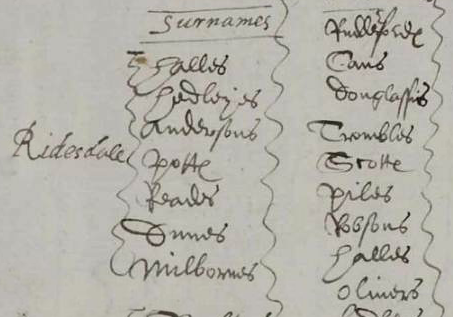 Surnames
Ridesdale
Halles
Hedleyes
Andersons
Potte
Reades
Dunes
Milbornes
Rudderforde
Cars
Douglassis
Trombles
Scotte
Piles
Robsons
Halles
Olivers